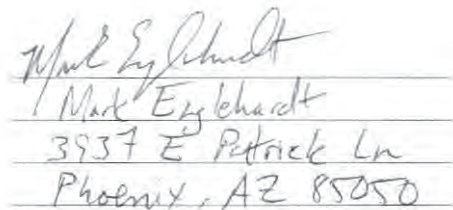 Mark Englehardt
Mark Englehardt
3937 E Patrick Ln
Phoenix, AZ 85050